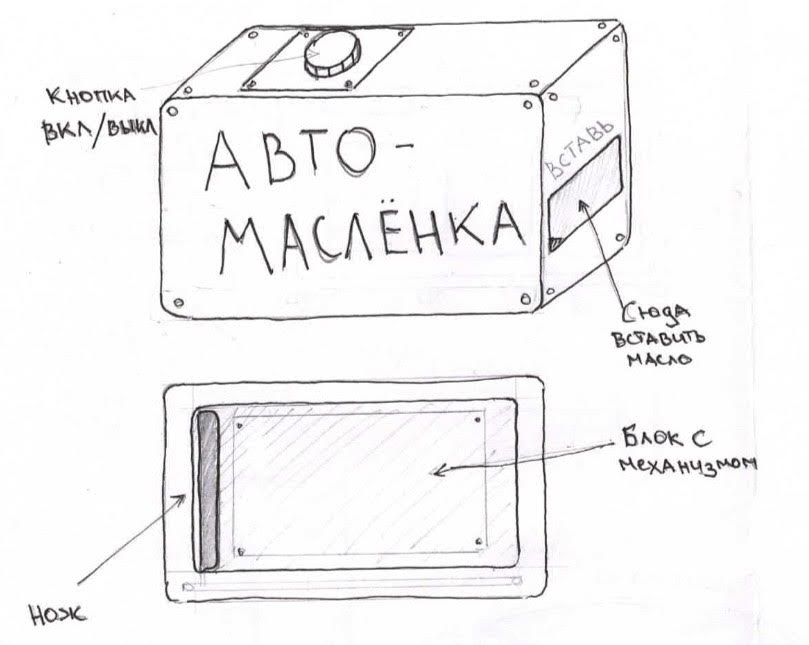 Кнопка
вкл/выкл
АВТО-
МАСЛЁНКА
ВСТАВЬ
Сюда
вставить
масло
Блок с
механизмом
Нож